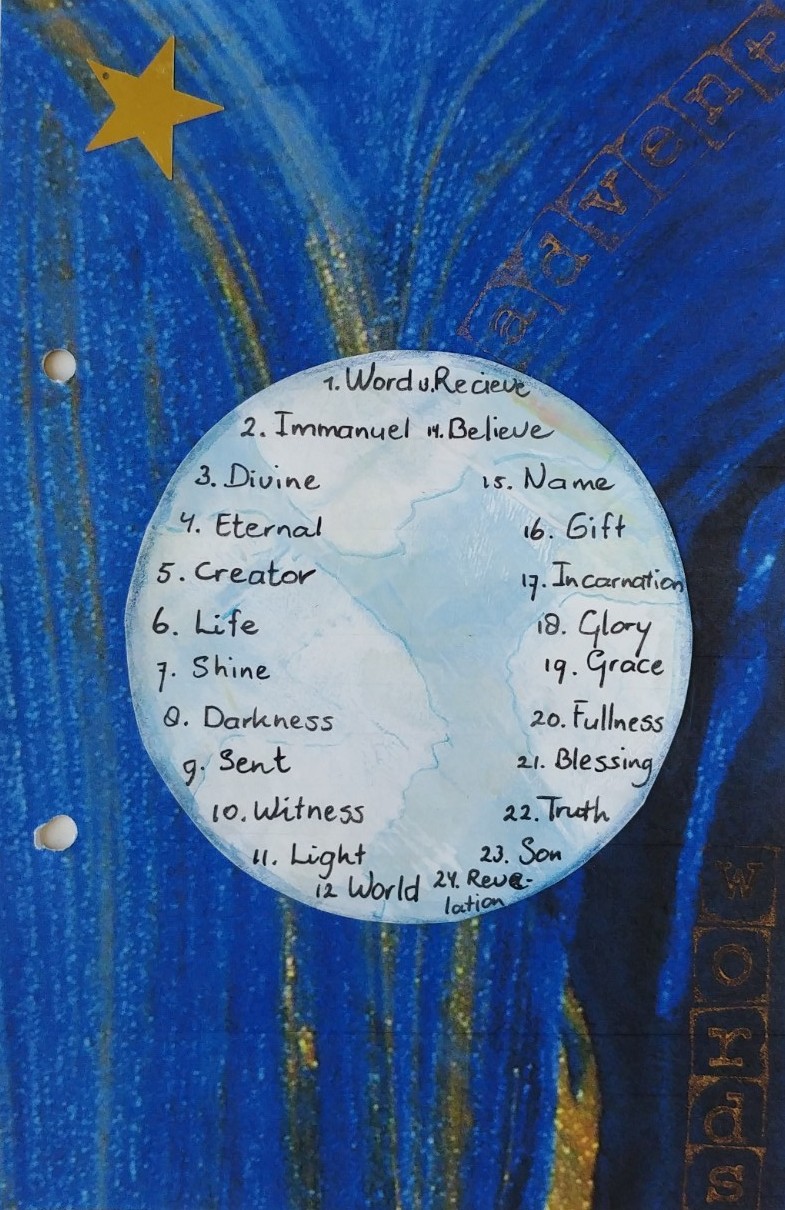 advent
1. Word 13. Recieve
2. Immanuel 14. Believe
3. Divine 15. Name
4. Eternal 16. Gift
5. Creator 17. Incarnation
6. Life 18. Glory
7. Shine 19. Grace
8. Darkness 20. Fullness
9. Sent 21. Blessing
10. Witness 22. Truth
11. Light 23. Son
12 World 24. Reve-
lation
words